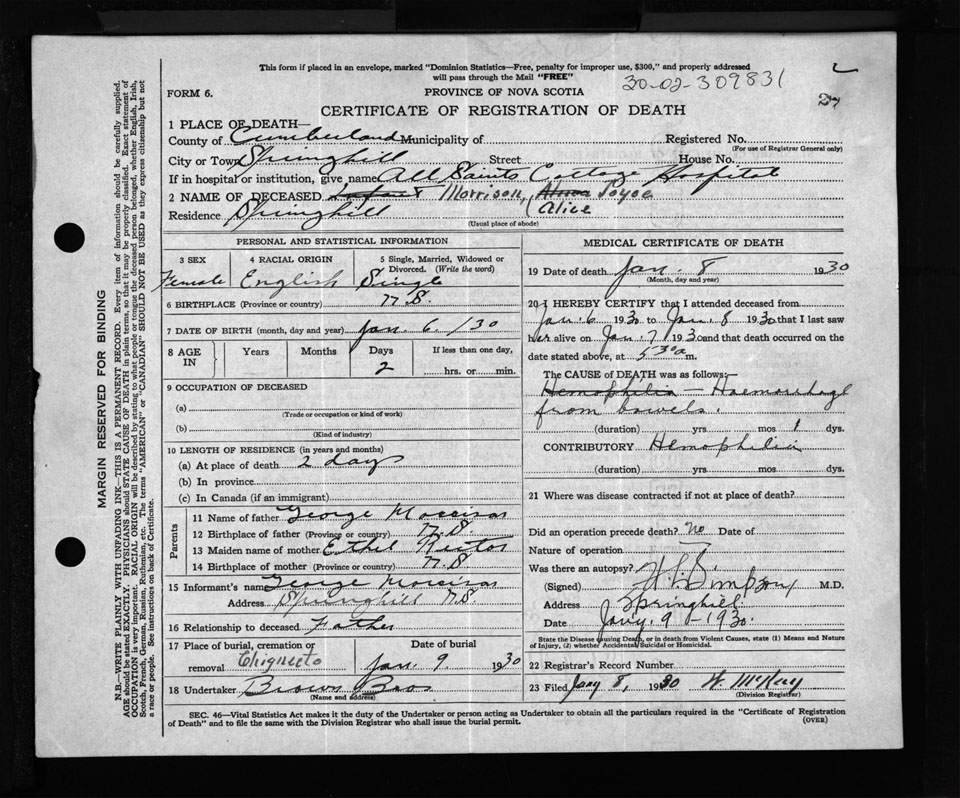 This form if placed in an envelope, marked "Dominion Statistics—Free, penalty for improper use, $300," and properly addressed
will pass through the Mail "FREE"
30-02-309831
FORM 6.
PROVINCE OF NOVA SCOTIA
CERTIFICATE OF REGISTRATION OF DEATH
1 PLACE OF DEATH—
County of Cumberland Municipality of Registered No.
(For use of Registrar General only)
City or Town Springhill Street House No.
If in hospital or institution, give name All Saints Cottage Hospital
2 NAME OF DECEASED Infant Morrison, Alma Joyce
(Alice
Residence Springhill
(Usual place of abode)
PERSONAL AND STATISTICAL INFORMATION
3 SEX 4 RACIAL ORIGIN 5 Single, Married, Widowed or
Divorced. (Write the word)
Female English Single
6 BIRTHPLACE (Province or country) N.S.
7 DATE OF BIRTH (month, day and year) Jan. 6. /30
8 AGE IN Years Months Days If less than one day,
2 hrs. or min.
9 OCCUPATION OF DECEASED
(a)
(Trade or occupation or kind of work)
(b)
(Kind of industry)
10 LENGTH OF RESIDENCE (in years and months)
(a) At place of death 2 days
(b) In province
(c) In Canada (if an immigrant)
Parents
11 Name of father George Morrison
12 Birthplace of father (Province or country) N.S.
13 Maiden name of mother Ethel
14 Birthplace of mother (Province or country) N.S
15 Informant's name George Morrison
Address Springhill N.S
16 Relationship to deceased Father
17 Place of burial, cremation or Date of burial
removal Chignecto Jan. 9. 1930
18 Undertaker Brown Bros
(Name and address)
MEDICAL CERTIFICATE OF DEATH
19 Date of death Jan. 8 1930
(Month, day and year)
20 I HEREBY CERTIFY that I attended deceased from
Jan. 6 1930 to Jan. 8 1930 that I last saw
her alive on Jan. 7 1930 and that death occurred on the
date stated above, at 5 30 a m.
The CAUSE of DEATH was as follows:
Hemophilia - Haemorrhage
from bowels.
(duration) yrs. mos 1 dys.
CONTRIBUTORY Hemophilia
(duration) yrs. mos. dys.
21 Where was disease contracted if not at place of death?
Did an operation precede death? No Date of
Nature of operation
Was there an autopsy?
(Signed) Simpson M.D.
Address Springhill.
Date Jany. 9 - 1930.
State the Disease causing Death, or in death from Violent Causes, state (1) Means and Nature
of Injury, (2) whether Accidental, Suicidal or Homicidal.
22 Registrar's Record Number
23 Filed Jany 8, 1930
(Division Registrar)
SEC. 46—Vital Statistics Act makes it the duty of the Undertaker or person acting as Undertaker to obtain all the particulars required in the "Certificate of Registration
of Death" and to file the same with the Division Registrar who shall issue the burial permit. (OVER)
MARGIN RESERVED FOR BINDING
N.B.—WRITE PLAINLY WITH UNFADING INK—THIS IS A PERMANENT RECORD. Every item of information should be carefully supplied.
AGE should be stated EXACTLY. PHYSICIANS should STATE CAUSE OF DEATH in plain terms, so that it may be properly classified. Exact statement of
OCCUPATION is very important. RACIAL ORIGIN will be described by stating to what people or tongue the deceased person belonged, whether English, Irish,
Scotch, French, German, Russian, Ruthenian, etc. The terms "AMERICAN" or "CANADIAN" SHOULD NOT BE USED as they express citizenship but not
a race or people. See instructions on back of Certificate.